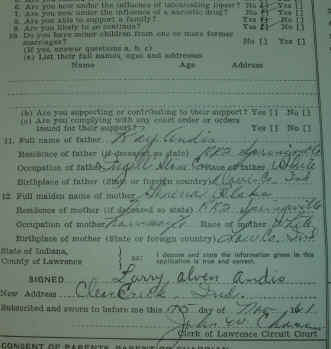 6. Are you now under the influence of intoxicating liquor? No [] Yes []
7. Are you now under the influence of a narcotic drug? No [] Yes []
8. Are you able to support a family? Yes [] No []
9. Are you likely to so continue? Yes [] No []
10. Do you have minor children from one or more former
marriages? No [] Yes []
(If yes, answer questions a, b, c)
(a) List their full names, ages and addresses
Name Age Address
(b) Are you supporting or contributing to their support? Yes [] No []
(c) Are you complying with any court order or orders
issued for their support? Yes [] No []
11. Full name of father Ray Andis
Residence of father (if deceased so state) RR2
Occupation of father Race of father White
Birthplace of father (State or foreign country) Ind
12. Full maiden name of mother
Residence of mother (if deceased so state) RR2
Occupation of mother Race of mother White
Birthplace of mother (State or foreign country) Ind
State of Indiana,
County of Lawrence
ss: I depose and state the information given in this
application is true and correct.
SIGNED Larry Alven Andis
New Address Clear Creek, Ind.
Subscribed and sworn to before this day of Nov, 61.
John W.
Clerk of Lawrence Circuit Court
CONSENT OF PARENTS, PARENT OR GUARDIAN